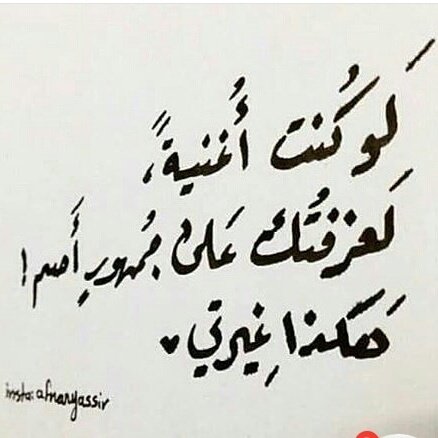 لَو كُنت أُغنيةً،
لَعزفتُك عَلى جُمهورٍ أَصم!
هَكذا غِيرتي ♥
insta: afnanyassir